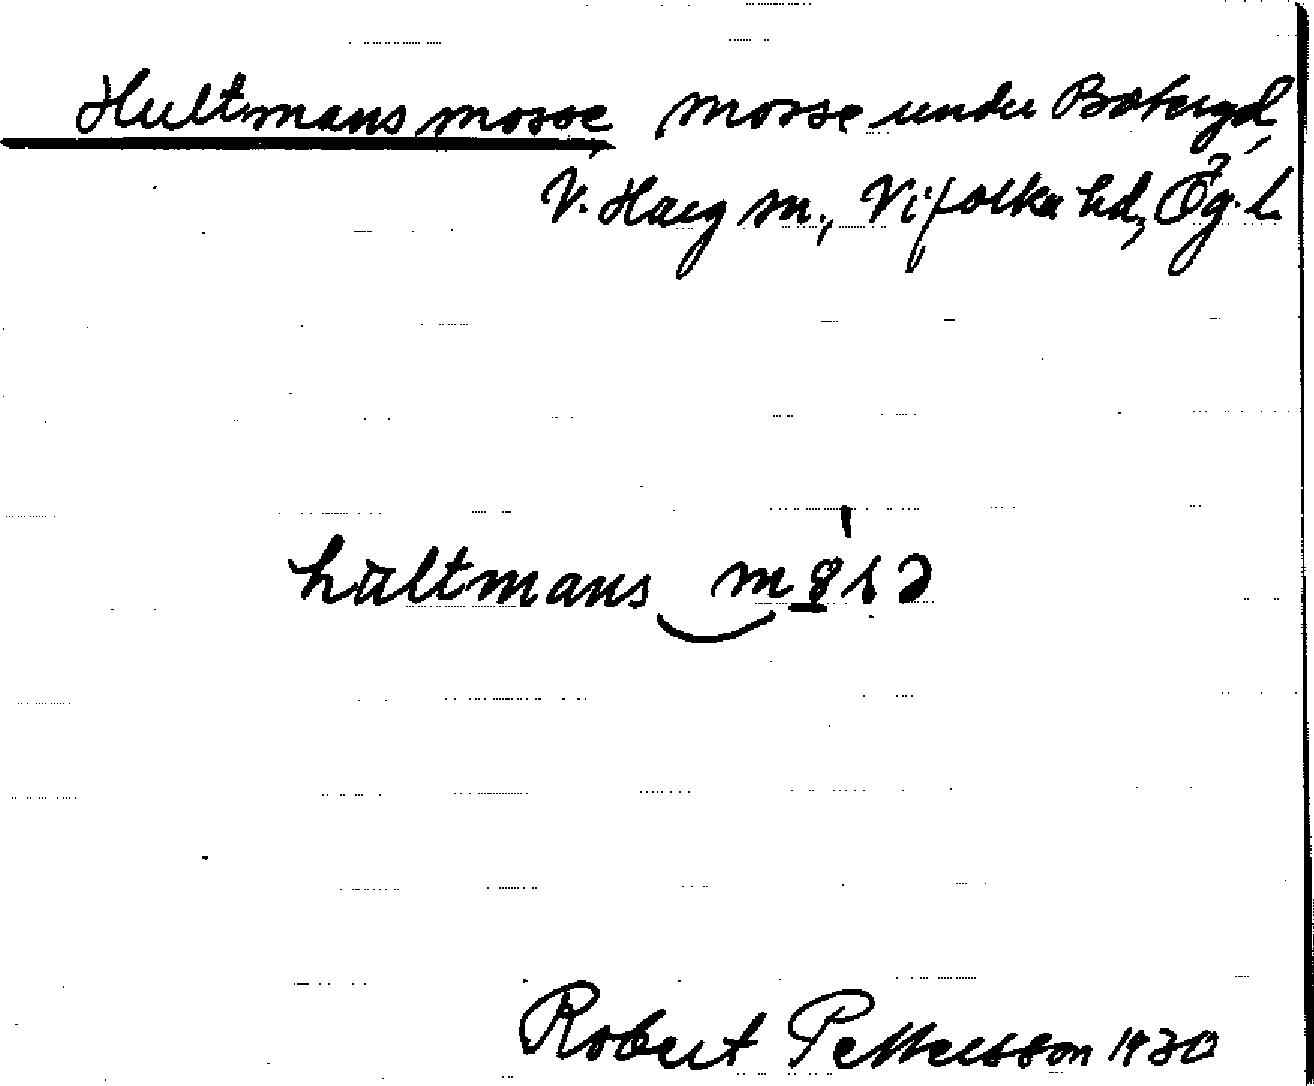 Hultmans mosse mosse under
V. Harg sn., Vifolka hd, Ög. l.
hultmans
Robert Pettersson 1930